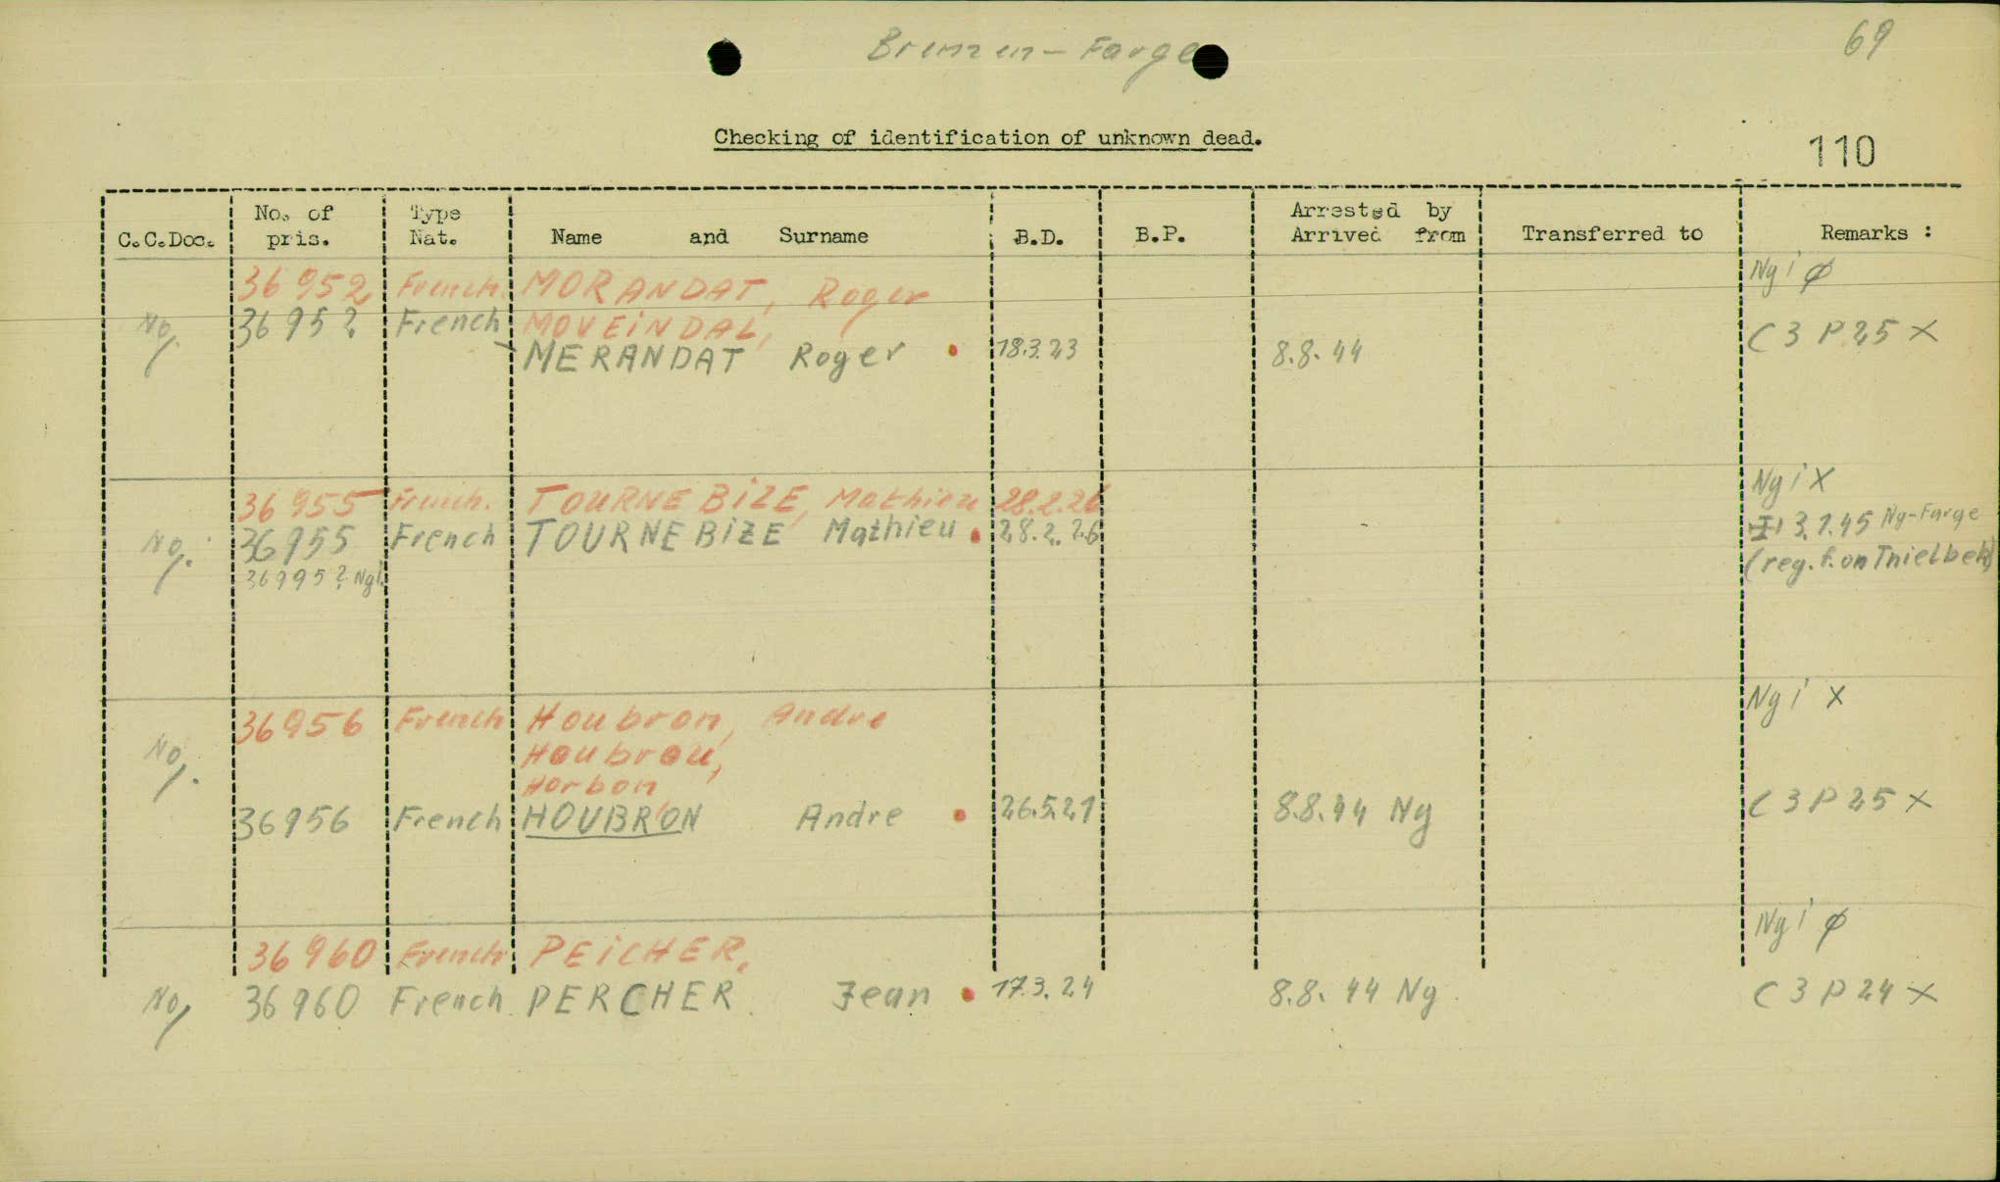 Bremen-Farge
69
Checking of identification of unknown dead.
110
C.C.Doc. No. of pris. Type Nat. Name and Surname B.D. B.P. Arrested by Arrived from Transferred to Remarks :
36 952 French MORANDAT, Roger Ng i ø
No. 36 952 French MOVEINDAL, C 3 P 25 X
MERANDAT Roger 18.3.23 8.8.44
36 955 French. TOURNEBIZE, Mathieu 28.2.26 Ng i X
No. 36 955 French TOURNEBIZE Mathieu 28.2.26 3.1.45 Ng-Farge
36995? Ngi (reg. f. on Thielbek)
36 956 French Houbron, Andre Ng i X
No. Houbrou,
Horbon
36956 French HOUBRON Andre 26.5.21 8.8.44 Ng C 3 P 25 X
36 960 French PEICHER, Ng i ø
No. 36 960 French PERCHER Jean 17.3.24 8.8.44 Ng C 3 P 24 X